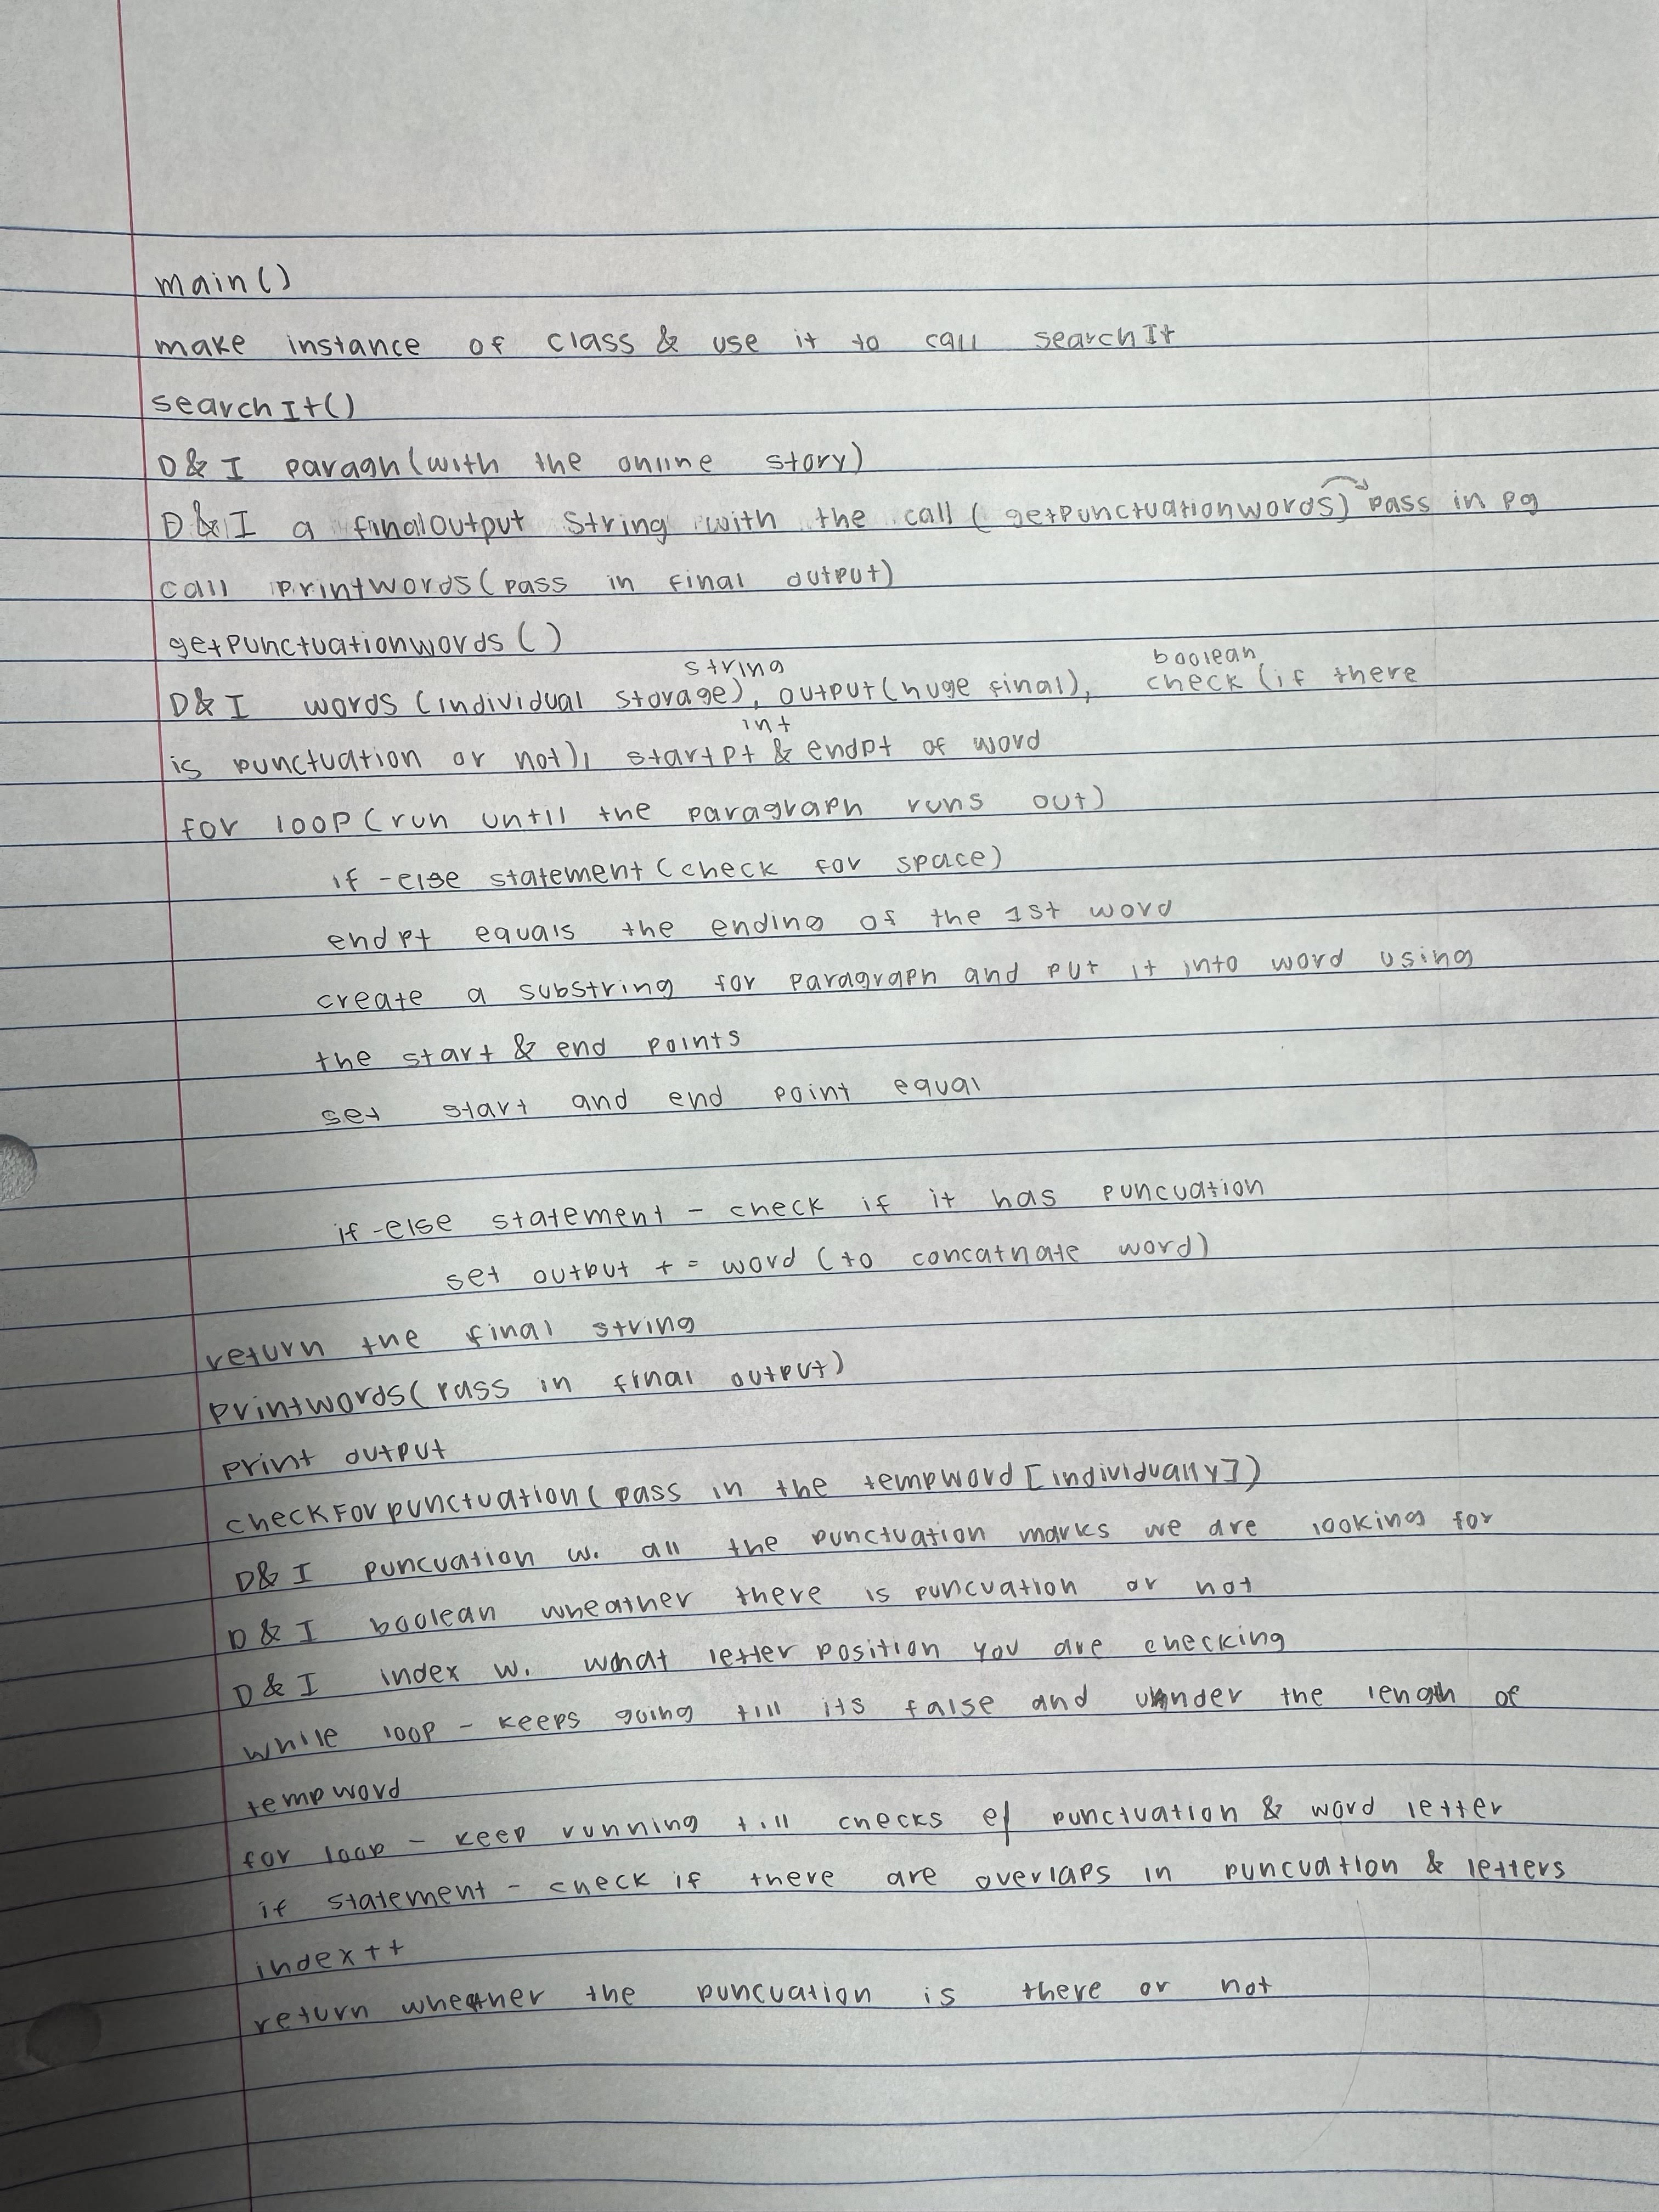 main()
make instance of class & use it to call searchIt
searchIt()
D&I paragh(with the online story)
D&I a finaloutput string with the call (getPunctuationwords) pass in pg
call printwords(pass in final output)
getPunctuationwords()
string boolean
D&I words (individual storage), output(huge final), check (if there
int
is punctuation or not), startpt & endpt of word
for loop (run until the paragraph runs out)
if-else statement (check for space)
endpt equals the ending of the 1st word
create a substring for paragraph and put it into word using
the start & end points
set start and end point equal
if-else statement - check if it has puncuation
set output += word (to concatnate word)
return the final string
printwords(pass in final output)
print output
checkForpunctuation(pass in the tempword[individually])
D&I puncuation w. all the punctuation marks we are looking for
D&I boolean wheather there is puncuation or not
D&I index w. what letter position you are checking
while loop - keeps going till its false and under the length of
tempword
for loop - keep running till checks of punctuation & word letter
if statement - check if there are overlaps in puncuation & letters
index++
return whether the puncuation is there or not